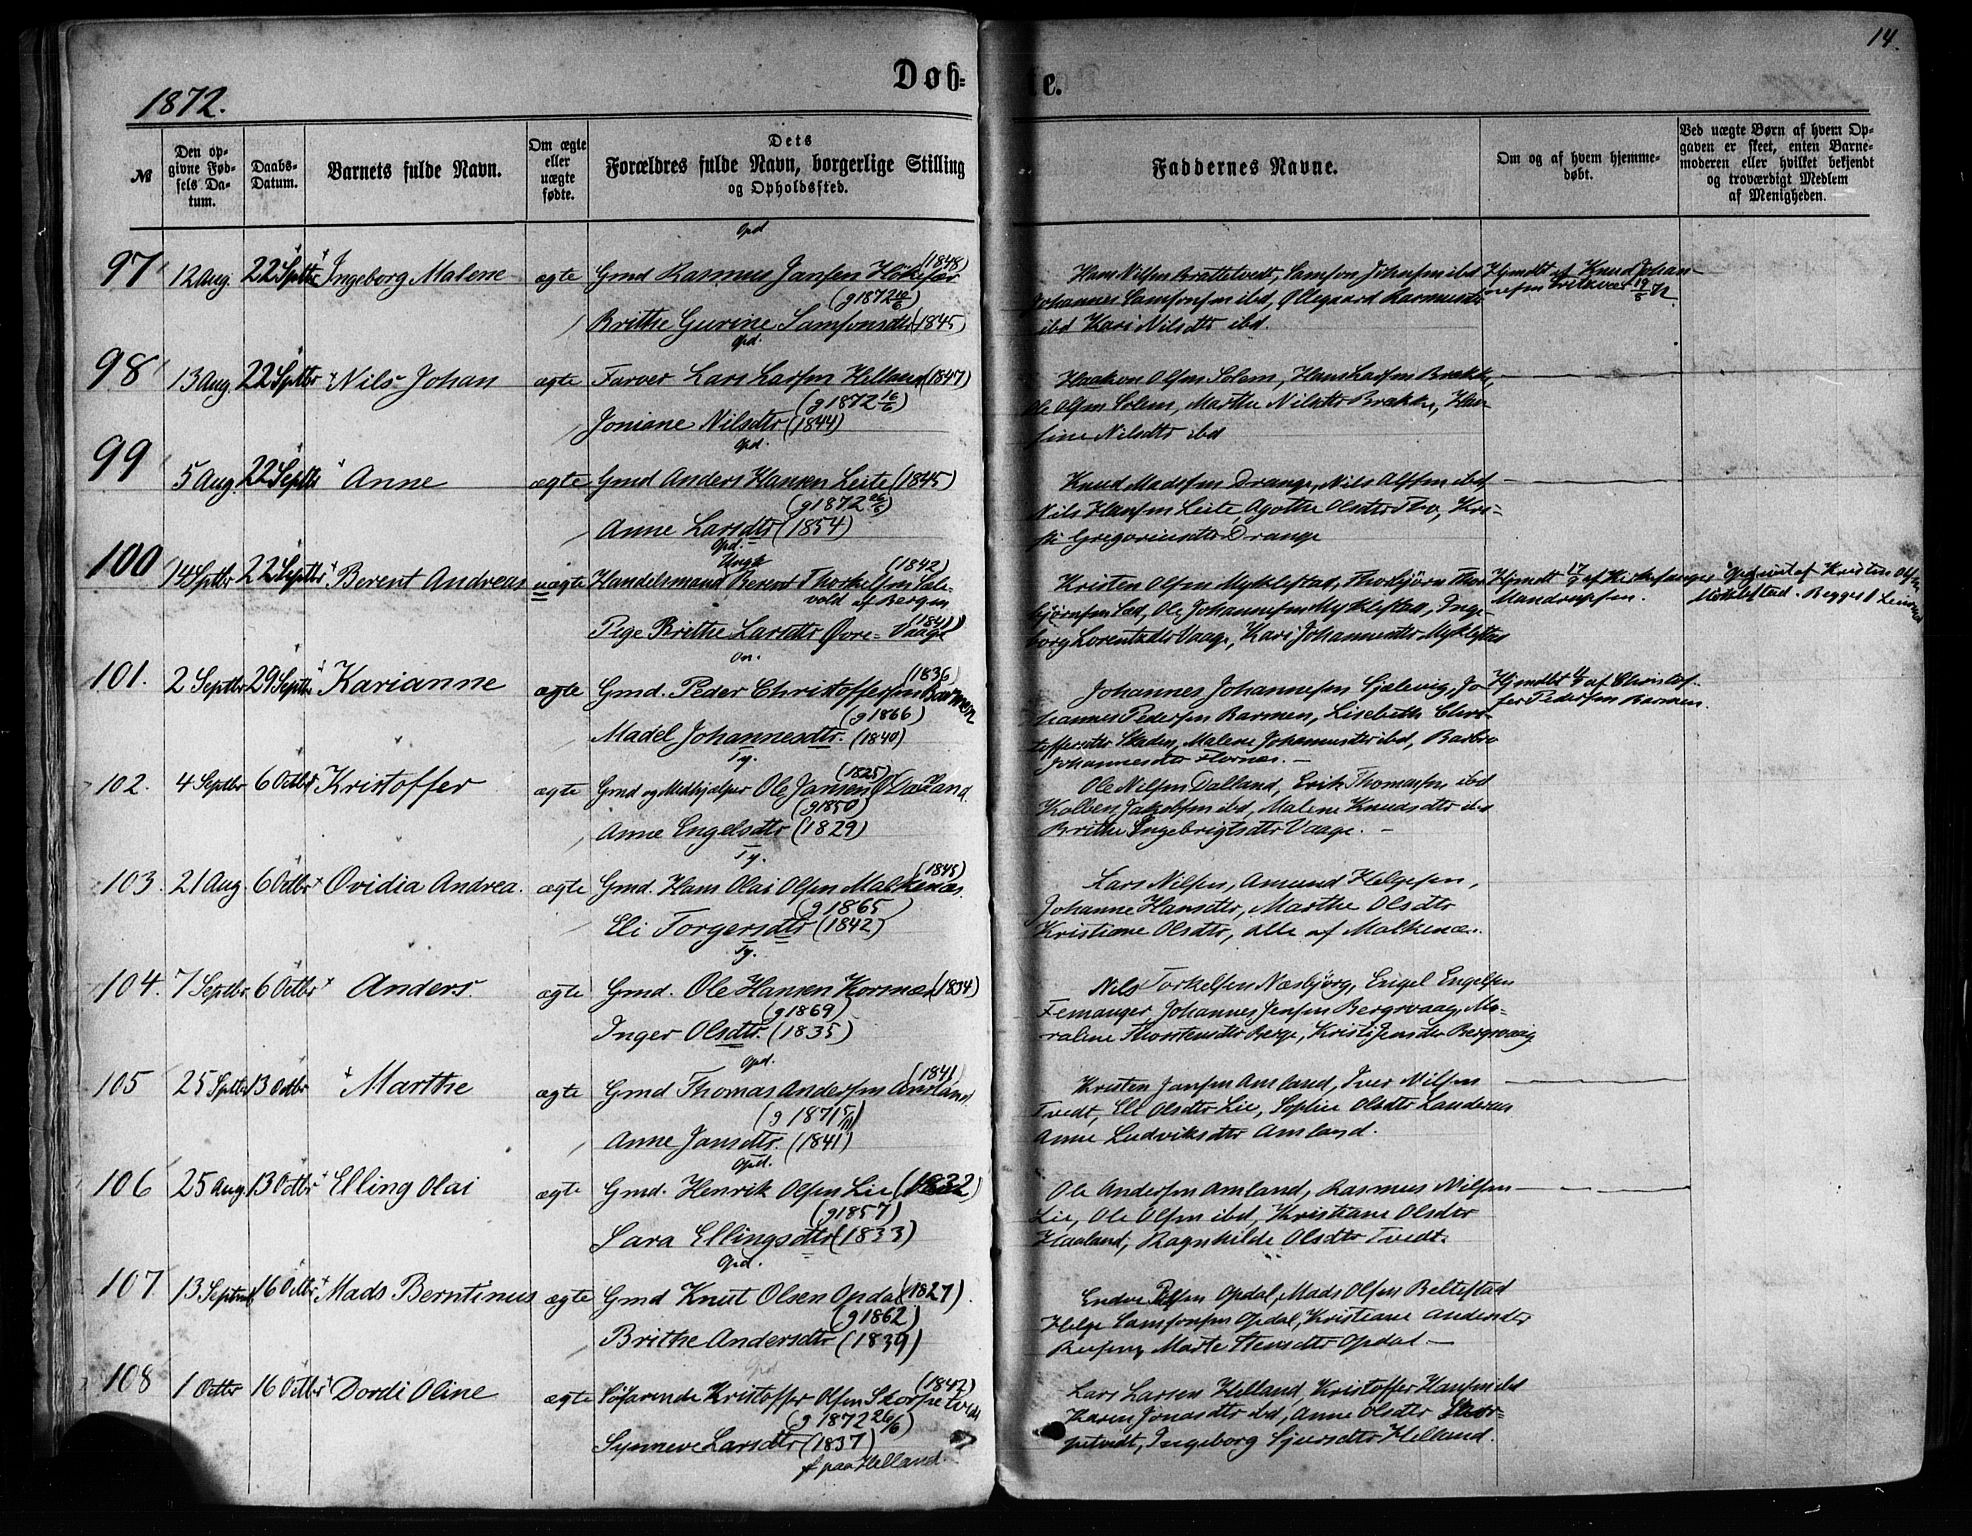 14.
Døb-
te.
1872.
№
Den op-
givne Fød-
sels Da-
tum.
Daabs-
Datum.
Barnets fulde Navn.
Om ægte
eller
uægte
fødte.
Dets
Forældres fulde Navn, borgerlige Stilling
og Opholdssted.
Faddernes Navne.
Om og af hvem hjemme-
døbt.
Ved uægte Børn af hvem Op-
gaven er skeet, enten Barne-
moderen eller hvilket bekjendt
og troværdigt Medlem
af Menigheden.
Opd
97 12 Aug. 22 Septbr Ingeborg Malene ægte Gmd Rasmus Jansen (1848)
(g 1872 16/6)
Brithe Gurine Samsonsdtr (1845)
Hans Nilsen Brattetvedt, Samson Johnsen ibd
Johannes Samsonsen ibd, Øllegaard Rasmusdtr
ibd Kari Nilsdtr ibd.
Hjmdt af Knud Johan-
nesen
Opd.
98 13 Aug. 22 Septbr Nils Johan ægte Farver Lars Larsen Helland (1847)
(g 1872 16/6)
Joniane Nilsdtr (1844)
Haakon Olsen Solem, Hans Larsen Brække,
Ole Olsen Solem, Marthe Nilsdtr Brække, Han-
sine Nilsdtr ibd
Opd.
99 5 Aug. 22 Septbr Anne ægte Gmd Anders Hansen Leite (1845)
(g 1872 26/5)
Anne Larsdtr (1854)
Knud Madsen Drange, Nils Olsen ibd
Nils Hansen Leite, Agothe Olsdtr Bro, Kri-
sti Gregoriusdtr Drange
Opd.
100 14 Septbr 22 Septbr Berent Andreas uægte Ungk (1842)
Handelsmand Berent Thorkelsen Sale-
vold af Bergen
Pige Brithe Larsdtr Øvre-Vaage (1841)
Kristen Olsen Myklestad, Thorbjørn Thor-
bjørnsen Lad, Ole Johannesen Myklestad, Inge-
borg Lorentsdtr Vaage, Kari Johannesdtr Myklestad
Hjmdt 17/9 af
Mandrupsen.
Opgivet af Kristen Olsen
Myklestad. Begges 1 Leierm
On.
101. 2 Septbr 29 Septbr Karianne ægte Gmd. Peder Christoffersen Barmen (1836)
(g 1866)
Madel Johannesdtr. (1840)
Johannes Johannesen Sjælevig, Jo-
hannes Pedersen Barmen, Lisebeth Chri-
toffersdtr Skaden, Malene Johannesdtr ibd, Barbro
Johannesdtr Flornes. —
Hjmdbt 4/9 af Christof-
fer Pedersen Barmen.
Ty.
102. 4 Septbr 6 Octbr Kristoffer ægte Gmd og Medhjælper Ole Jansen Dalland. (1825)
(g 1850)
Anne Engelsdtr (1829)
Ole Nilsen Dalland, Erik Thomasen ibd
Kolben Jakobsen ibd, Malene Knudsdtr ibd
Brithe Ingebrigtsdtr Vaage. —
Ty.
103. 21 Aug 6 Octbr Ovidia Andrea. ægte Gmd. Hans Olai Olsen Malkenæs. (1845)
(g 1865)
Eli Torgersdtr (1842)
Lars Nilsen, Amund Helgesen,
Johanne Hansdtr, Marthe Olsdtr
Kristiane Olsdtr, alle af Malkenæs.
Ty.
104. 7 Septbr. 6 Octbr Anders. ægte Gmd. Ole Hansen Kornæs (1834)
(g 1869)
Inger Olsdtr. (1835)
Nils Torkelsen Næsbjørg, Engel Engelsen
Femanger, Johannes Jensen Bergsvaag, Ma-
ralene Thorstensdtr Berge, Kristi Jensdtr Bergsvaag
Opd.
105 25 Septbr 13 Octbr Marthe ægte Gmd Thomas Andersen Amland (1841)
(g 1871 5/11)
Anne Jansdtr. (1841)
Kristen Jansen Amland, Iver Nilsen
Tvedt, Eli Olsdtr Lie, Sophie Olsdtr Landeraas
Anne Ludviksdtr Amland.
Opd.
106 25 Aug 13 Octbr Elling Olai ægte Gmd. Henrik Olsen Lie (1832)
(g 1857)
Sara Ellingsdtr (1833)
Ole Andersen Amland, Rasmus Nilsen
Lie, Ole Olsen ibd, Kristiane Olsdtr
Haaland, Ragnhilde Olsdtr Tvedt.
Opd.
107. 13 Septmb 16 Octbr Mads Berntinus ægte Gmd Knut Olsen Opdal (1827).
(g 1862)
Brithe Andersdtr (1839)
Endre Olsen Opdal, Mads Olsen Beltestad
Helge Samsonsen Opdal, Kristiane Andersdtr
Marte Stensdtr Opdal —
Opd
108 1 Octbr 16 Octbr Dordi Oline ægte Søfarende Kristoffer Olsen Skorpetvedt (1842)
(g 1872 26/6)
Synneve Larsdtr (1837)
f paa Helland.
Lars Larsen Helland, Kristoffer Hansen ibd
Karen Jonasdtr ibd, Anne Olsdtr Skor-
petvedt, Ingeborg Sjursdtr Helland.